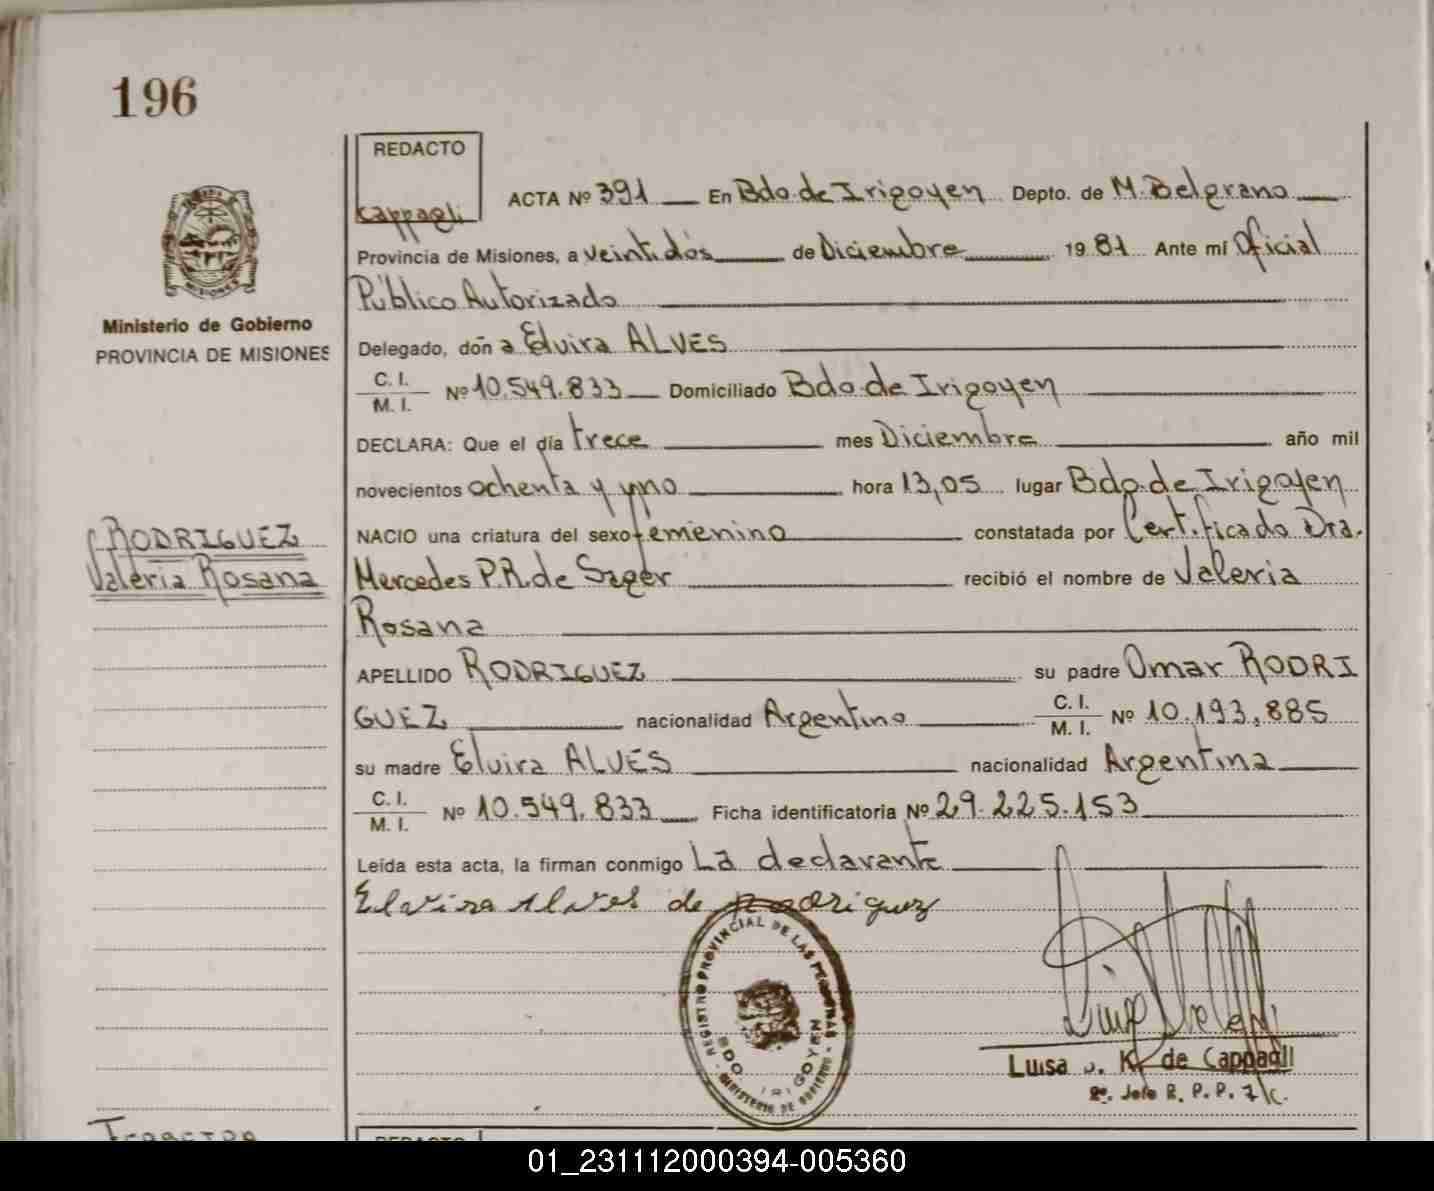 196
REDACTO
Cappagli
ACTA Nº 391 En Bdo. de Irigoyen Depto. de M. Belgrano
Provincia de Misiones, a veintidós de Diciembre 19 81 Ante mí Oficial
Público Autorizado
MISIONES
Ministerio de Gobierno
PROVINCIA DE MISIONES
Delegado, don a Elvira ALVES
C. I.
M. I. Nº 10.549.833 Domiciliado Bdo. de Irigoyen
DECLARA: Que el día trece mes Diciembre año mil
novecientos ochenta y uno hora 13,05 lugar Bdo. de Irigoyen
RODRIGUEZ
Valeria Rosana
NACIO una criatura del sexo femenino constatada por Certificado Dra.
Mercedes P.R. de Sager recibió el nombre de Valeria
Rosana
APELLIDO RODRIGUEZ su padre Omar RODRI
GUEZ nacionalidad Argentino C. I. M. I. Nº 10.193,885
su madre Elvira ALVES nacionalidad Argentina
C. I.
M. I. Nº 10.549.833 Ficha identificatoria Nº 29.225.153
Leída esta acta, la firman conmigo La declarante
Elvira Alves de Rodriguez
REGISTRO PROVINCIAL DE LAS PERSONAS
BDO IRIGOYEN
MINISTERIO DE GOBIERNO
Luisa K. de Cappagli
Jefe R. P. P. 7/c.
REDACTO
01_231112000394-005360